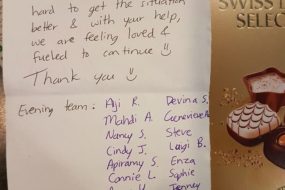 hard to get the situation
better & with your help,
we are feeling loved &
fueled to continue
Thank you
Evening team: Aji R. Devina S.
Mahdi A. Genevieve
Nancy S. Steve
Cindy J. Luigi B.
Apiramy S. Enza
Connie L. Sophie
SWISS
SELEC